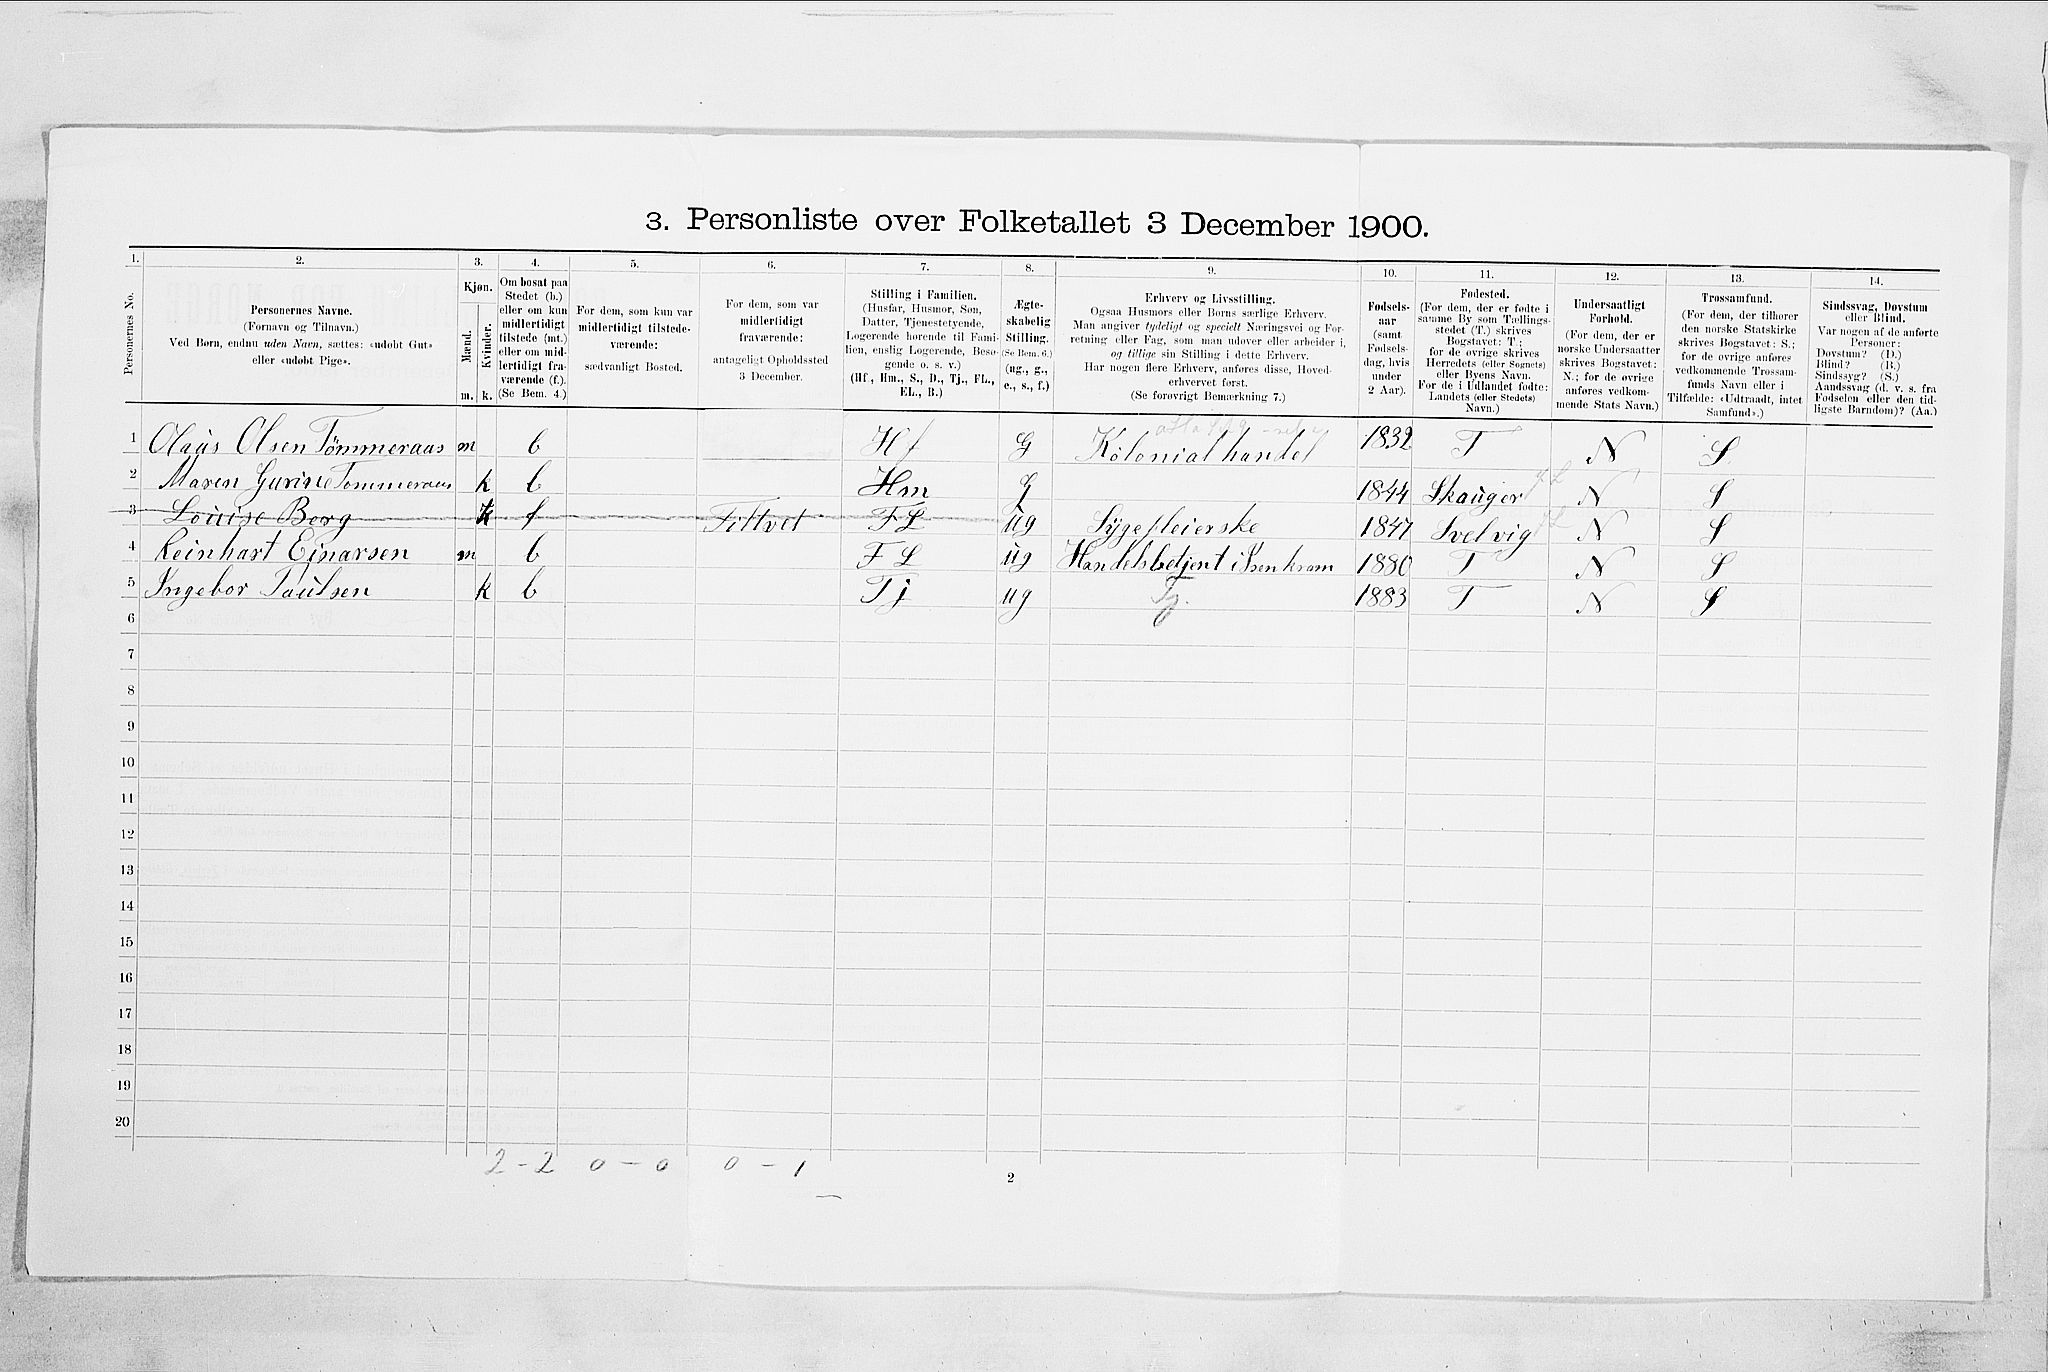 3. Personliste over Folketallet 3 December 1900.
1. 2. 3. 4. 5. 6. 7. 8. 9. 10. 11. 12. 13. 14.
Personernes No.
Personernes Navne.
(Fornavn og Tilnavn.)
Ved Børn, endnu uden Navn, sættes: «udøbt Gut»
eller «udøbt Pige».
Kjøn.
Mænd.
Kvinder.
m. k.
Om bosat paa
Stedet (b.)
eller om kun
midlertidigt
tilstede (mt.)
eller om mid-
lertidigt fra-
værende (f.).
(Se Bem. 4.)
For dem, som kun var
midlertidigt tilstede-
værende:
sædvanligt Bosted.
For dem, som var
midlertidigt
fraværende:
antageligt Opholdssted
3 December.
Stilling i Familien.
(Husfar, Husmor, Søn,
Datter, Tjenestetyende,
Logerende hørende til Fami-
lien, enslig Logerende, Besø-
gende o. s. v.)
(Hf., Hm., S., D., Tj., FL.,
EL., B.)
Ægte-
skabelig
Stilling.
(Se Bem. 6.)
(ug., g.,
e., s., f.)
Erhverv og Livsstilling.
Ogsaa Husmors eller Børns særlige Erhverv.
Man angiver tydeligt og specielt Næringsvei og For-
retning eller Fag, som man udøver eller arbeider i,
og tillige sin Stilling i dette Erhverv.
Har nogen flere Erhverv, anføres disse, Hoved-
erhvervet først.
(Se forøvrigt Bemærkning 7.)
Fødsels-
aar
(samt
Fødsels-
dag, hvis
under
2 Aar).
Fødested.
(For dem, der er fødte i
samme By som Tællings-
stedet (T.) skrives
Bogstavet: T.;
for de øvrige skrives
Herredets (eller Sognets)
eller Byens Navn.
For de i Udlandet fødte:
Landets (eller Stedets)
Navn.)
Undersaatligt
Forhold.
(For dem, der er
norske Undersaatter
skrives Bogstavet:
N.; for de øvrige
anføres vedkom-
mende Stats Navn.)
Trossamfund.
(For dem, der tilhører
den norske Statskirke
skrives Bogstavet: S.;
for de øvrige anføres
vedkommende Trossam-
funds Navn eller i
Tilfælde: «Udtraadt, intet
Samfund».)
Sindssvag, Døvstum
eller Blind.
Var nogen af de anførte
Personer:
Døvstum? (D.)
Blind? (B.)
Sindssyg? (S.)
Aandssvag (d. v. s. fra
Fødselen eller den tid-
ligste Barndom)? (Aa.)
1 Olaus Olsen Tømmeraas m b Hf G Kolonialhandel 1832 T N S
2 Maren Gurine Tømmeraas k b Hm G 1844 Skauger N S
3 Louise Berg k f Tittvet FL ug Sygepleierske 1847 Svelvig N S
4 Reinhart Einarsen m b FL ug Handelsbetjent i Isenkram 1880 T N S
5 Ingebor Paulsen k b Tj ug Tj. 1883 T N S
6
7
8
9
10
11
12
13
14
15
16
17
18
19
20
2 - 2 0 - 0 0 - 1
2